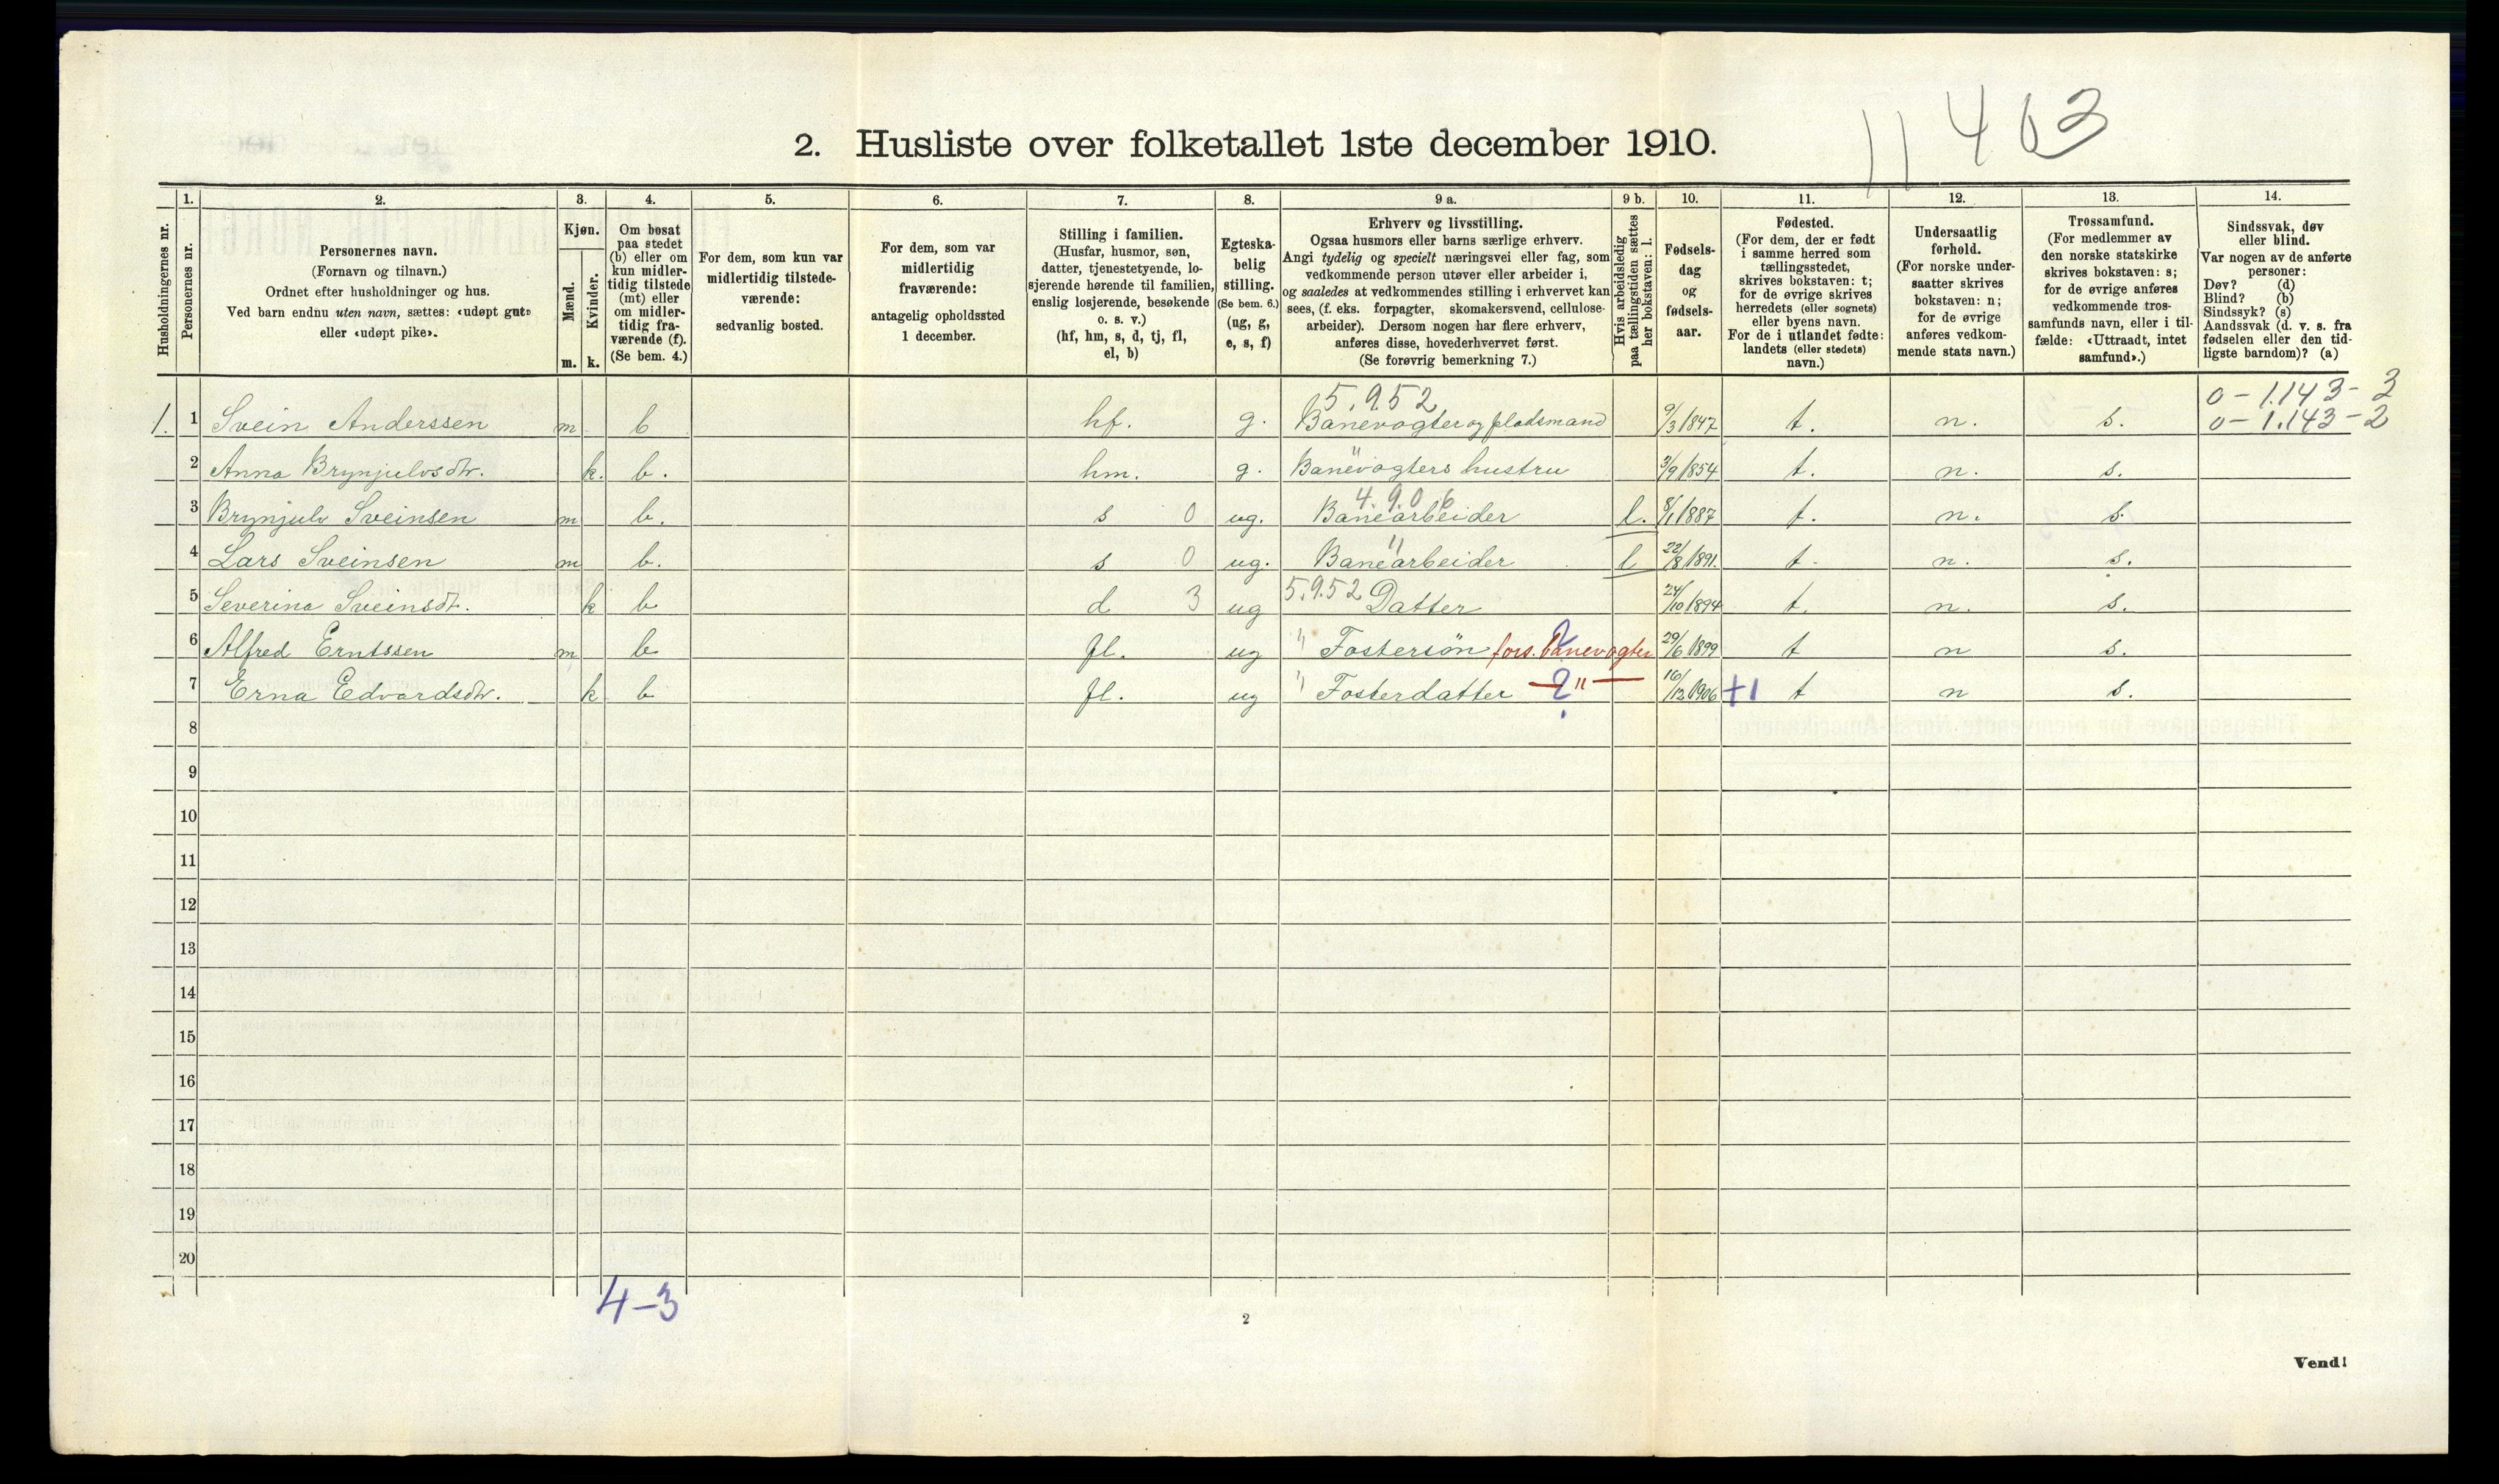 11 403
2. Husliste over folketallet 1ste december 1910.
Husholdningernes nr.
1. Personernes nr.
2. Personernes navn.
(Fornavn og tilnavn.)
Ordnet efter husholdninger og hus.
Ved barn endnu uten navn, sættes: «udøpt gut»
eller «udøpt pike».
3. Kjøn.
Mænd. m.
Kvinder. k.
4. Om bosat
paa stedet
(b) eller om
kun midler-
tidig tilstede
(mt) eller
om midler-
tidig fra-
værende (f).
(Se bem. 4.)
5. For dem, som kun var
midlertidig tilstede-
værende:
sedvanlig bosted.
6. For dem, som var
midlertidig
fraværende:
antagelig opholdssted
1 december.
7. Stilling i familien.
(Husfar, husmor, søn,
datter, tjenestetyende, lo-
sjerende hørende til familien,
enslig losjerende, besøkende
o. s. v.)
(hf, hm, s, d, tj, fl,
el, b)
8. Egteska-
belig
stilling.
(Se bem. 6.)
(ug, g,
e, s, f)
9 a. Erhverv og livsstilling.
Ogsaa husmors eller barns særlige erhverv.
Angi tydelig og specielt næringsvei eller fag, som
vedkommende person utøver eller arbeider i,
og saaledes at vedkommendes stilling i erhvervet kan
sees, (f. eks. forpagter, skomakersvend, cellulose-
arbeider). Dersom nogen har flere erhverv,
anføres disse, hovederhvervet først.
(Se forøvrig bemerkning 7.)
9 b. Hvis arbeidsledig
paa tællingstiden sættes
her bokstaven: l.
10. Fødsels-
dag
og
fødsels-
aar.
11. Fødested.
(For dem, der er født
i samme herred som
tællingsstedet,
skrives bokstaven: t;
for de øvrige skrives
herredets (eller sognets)
eller byens navn.
For de i utlandet fødte:
landets (eller stedets)
navn.)
12. Undersaatlig
forhold.
(For norske under-
saatter skrives
bokstaven: n;
for de øvrige
anføres vedkom-
mende stats navn.)
13. Trossamfund.
(For medlemmer av
den norske statskirke
skrives bokstaven: s;
for de øvrige anføres
vedkommende tros-
samfunds navn, eller i til-
fælde: «Uttraadt, intet
samfund».)
14. Sindssvak, døv
eller blind.
Var nogen av de anførte
personer:
Døv? (d)
Blind? (b)
Sindssyk? (s)
Aandssvak (d. v. s. fra
fødselen eller den tid-
ligste barndom)? (a)
5.952 0 - 1.143 - 3
1. 1 Svein Anderssen m b hf. g. Banevogter og pladsmand 9/3 1847 t. n. s. 0 - 1.143 - 2
2 Anna Brynjulvsdtr. k. b. hm. g. Banevogters hustru 3/9 1854 t. n. s.
4.906
3 Brynjulv Sveinsen m b. s 0 ug. Banearbeider l. 8/1 1887 t. n. s.
4 Lars Sveinsen m b. s 0 ug. " Banearbeider l 22/8 1891. t. n. s.
5 Severina Sveinsdt. k b d 3 ug 5.952 Datter 24/10 1894 t. n. s.
6 Alfred Erntssen m b fl. ug " Fostersøn fors. Banevogter ? 29/6 1899 t n s.
7 Erna Edvardsdtr. k b fl. ug " Fosterdatter — " — ? 16/12 1906 +1 t n s.
8
9
10
11
12
13
14
15
16
17
18
19
20
4-3
2
Vend!